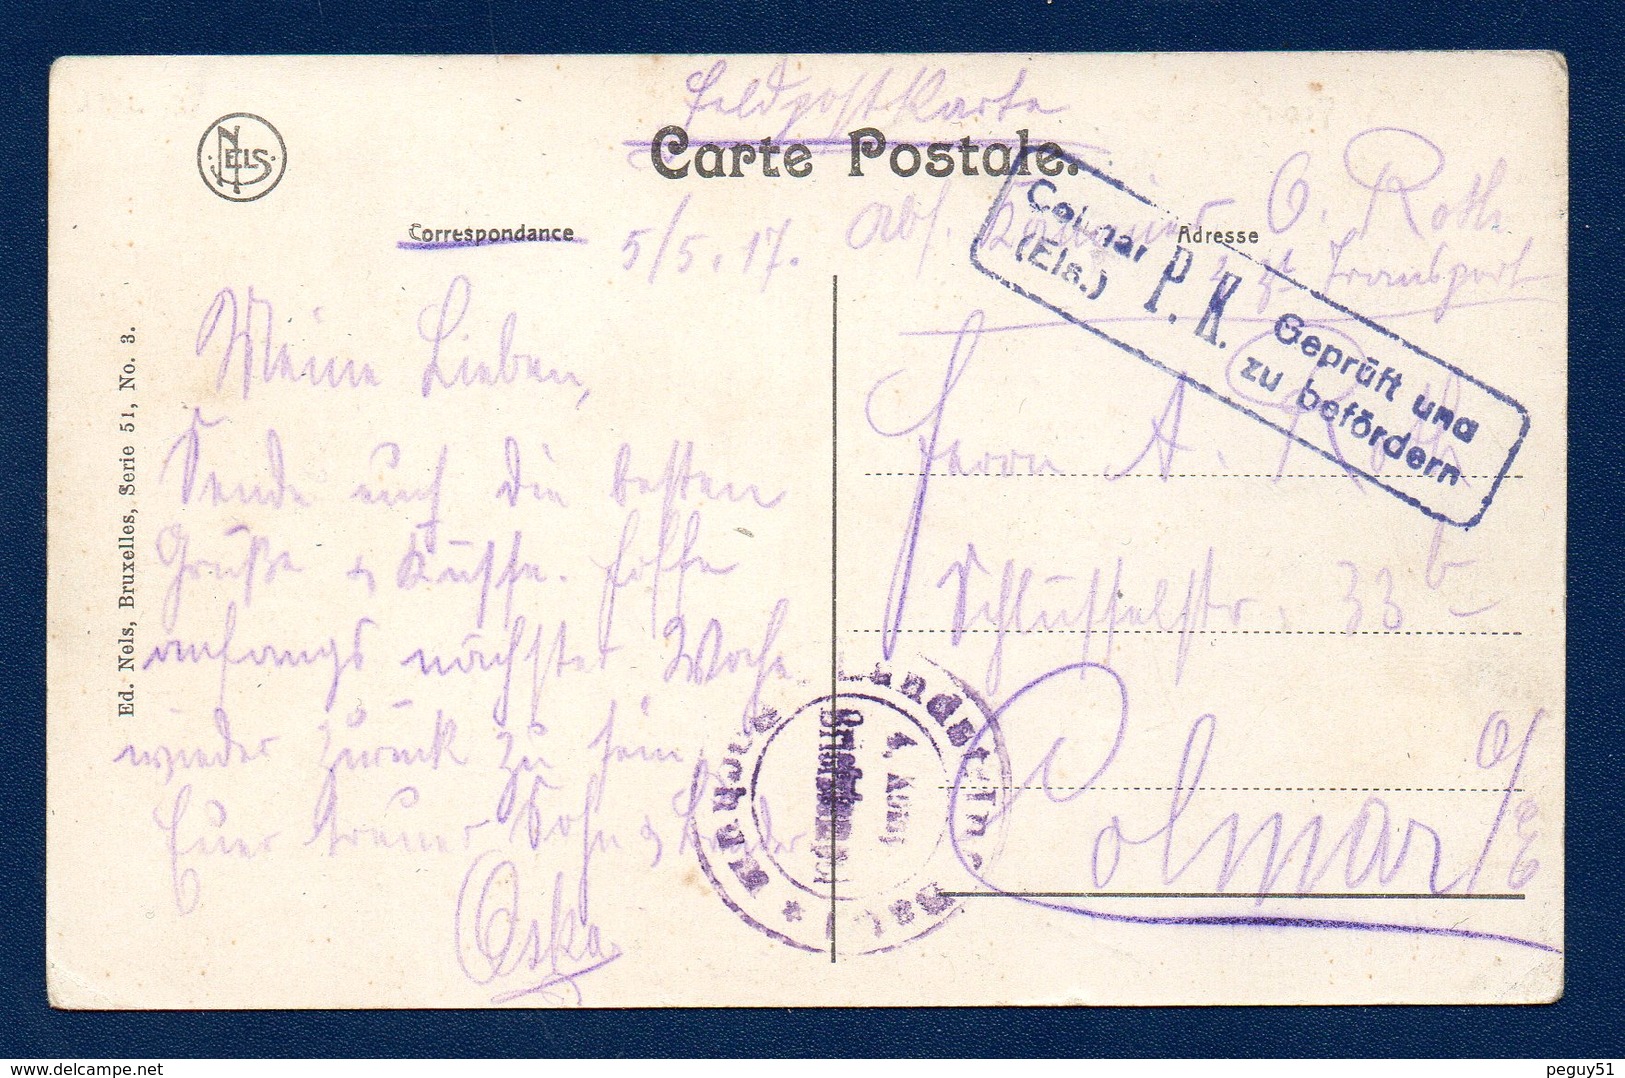 Feldpostkarte
NELS
Carte Postale.
Correspondance
Adresse
5/5.17.
Abs. O. Roth
z. Zt. Transport
Colmar (Els.) P. K. Geprüft und zu befördern
Meine Lieben,
Sende euch die besten
Grüße & Küsse. Hoffe
anfangs nächster Woche
wieder zurück zu sein.
Euer treuer Sohn & Bruder
Oskar
Herrn A. Roth
Schlüsselstr. 33 b
Colmar i/Els
Landst. Inf. Batl.
Ed. Nels, Bruxelles, Serie 51, No. 3.
peguy51